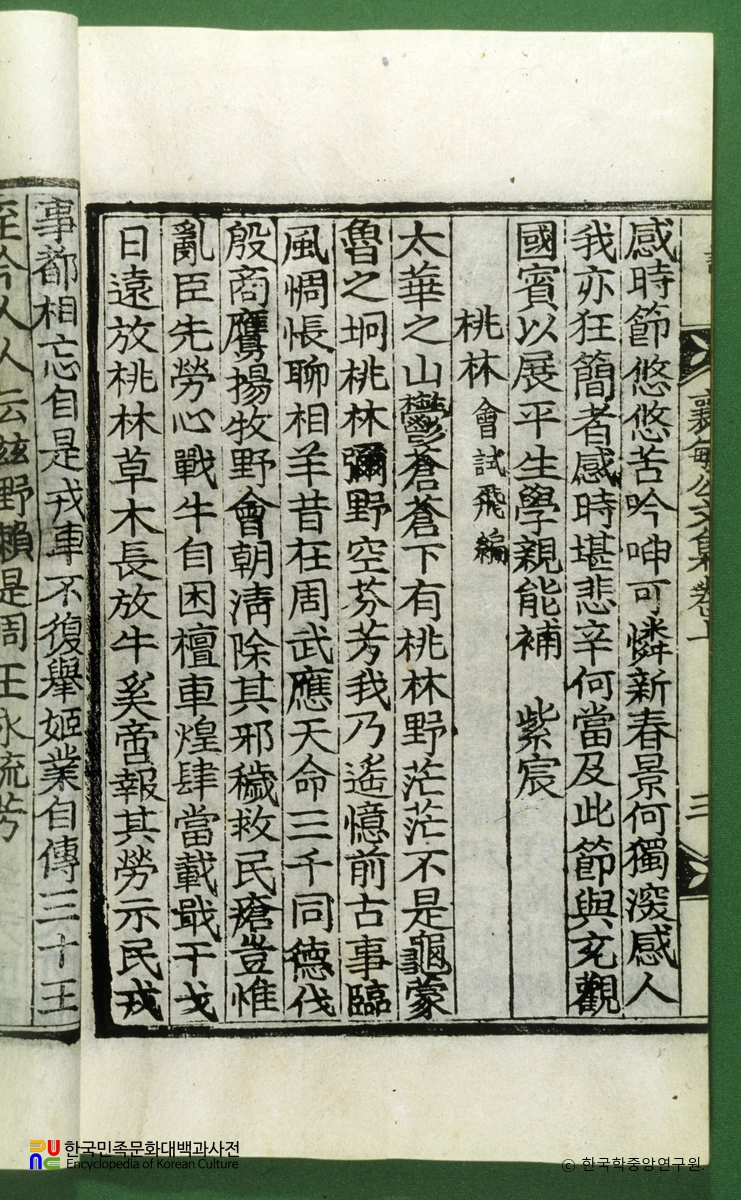 襄敏公文集卷上
三
感時節悠悠苦吟呻可憐新春景何獨深感人
我亦狂簡者感時堪悲辛何當及此節與充觀
國賓以展平生學親能補 紫宸
桃林 會試飛編
太華之山欝蒼蒼下有桃林野茫茫不是龜蒙
魯之坰桃林彌野空芬芳我乃遙憶前古事臨
風惆悵聊相羊昔在周武應天命三千同德伐
殷商鷹揚牧野會朝淸除其邪穢救民瘡豈惟
亂臣先勞心戰牛自困檀車煌肆當載戢干戈
日遠放桃林草木長放牛奚啻報其勞示民戎
事都相忘自是戎車不復擧姬業自傳三十王
至今人人云玆野賴是周王永流芳
한국민족문화대백과사전
Encyclopedia of Korean Culture
© 한국학중앙연구원